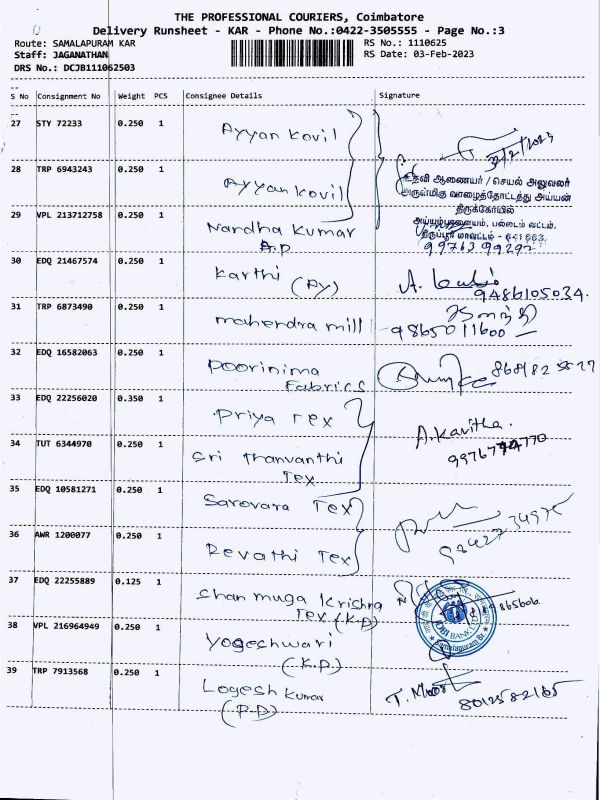 THE PROFESSIONAL COURIERS, Coimbatore
Delivery Runsheet - KAR - Phone No.:0422-3505555 - Page No.:3
Route: SAMALAPURAM KAR
RS No.: 1110625
Staff: JAGANATHAN
RS Date: 03-Feb-2023
DRS No.: DCJB111062503
S No Consignment No Weight PCS Consignee Details Signature
27 STY 72233 0.250 1 Ayyan kovil
3/2/2023
28 TRP 6943243 0.250 1 Ayyan kovil
உதவி ஆணையர் / செயல் அலுவலர்
அருள்மிகு வாழைத்தோட்டத்து அய்யன்
திருக்கோயில்
அய்யம்பாளையம், பல்லடம் வட்டம்,
திருப்பூர் மாவட்டம் - 641663.
29 VPL 213712758 0.250 1 Nandha kumar
A.P
30 EDQ 21467574 0.250 1 karthi (Ay)
9486105034.
31 TRP 6873490 0.250 1 mahendra mill
9865011600
32 EDQ 16582063 0.250 1 Poorinima
Fabrics
33 EDQ 22256020 0.350 1 Priya Tex
A.Kavitha.
34 TUT 6344970 0.250 1 Sri Thanvanthi
Tex
35 EDQ 10581271 0.250 1 Sarovara Tex
36 AWR 1200077 0.250 1 Revathi Tex
37 EDQ 22255889 0.125 1 Shanmuga Krishna
Tex (K.P)
IDBI BANK LTD
Samalapuram Br
38 VPL 216964949 0.250 1 Yogeshwari
(K.P)
39 TRP 7913568 0.250 1 Logesh kumar
(P.P)
8012582165